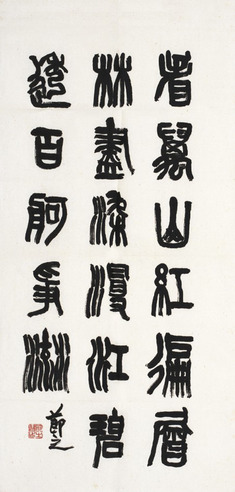 看萬山紅徧層
林盡染漫江碧
透百舸爭流